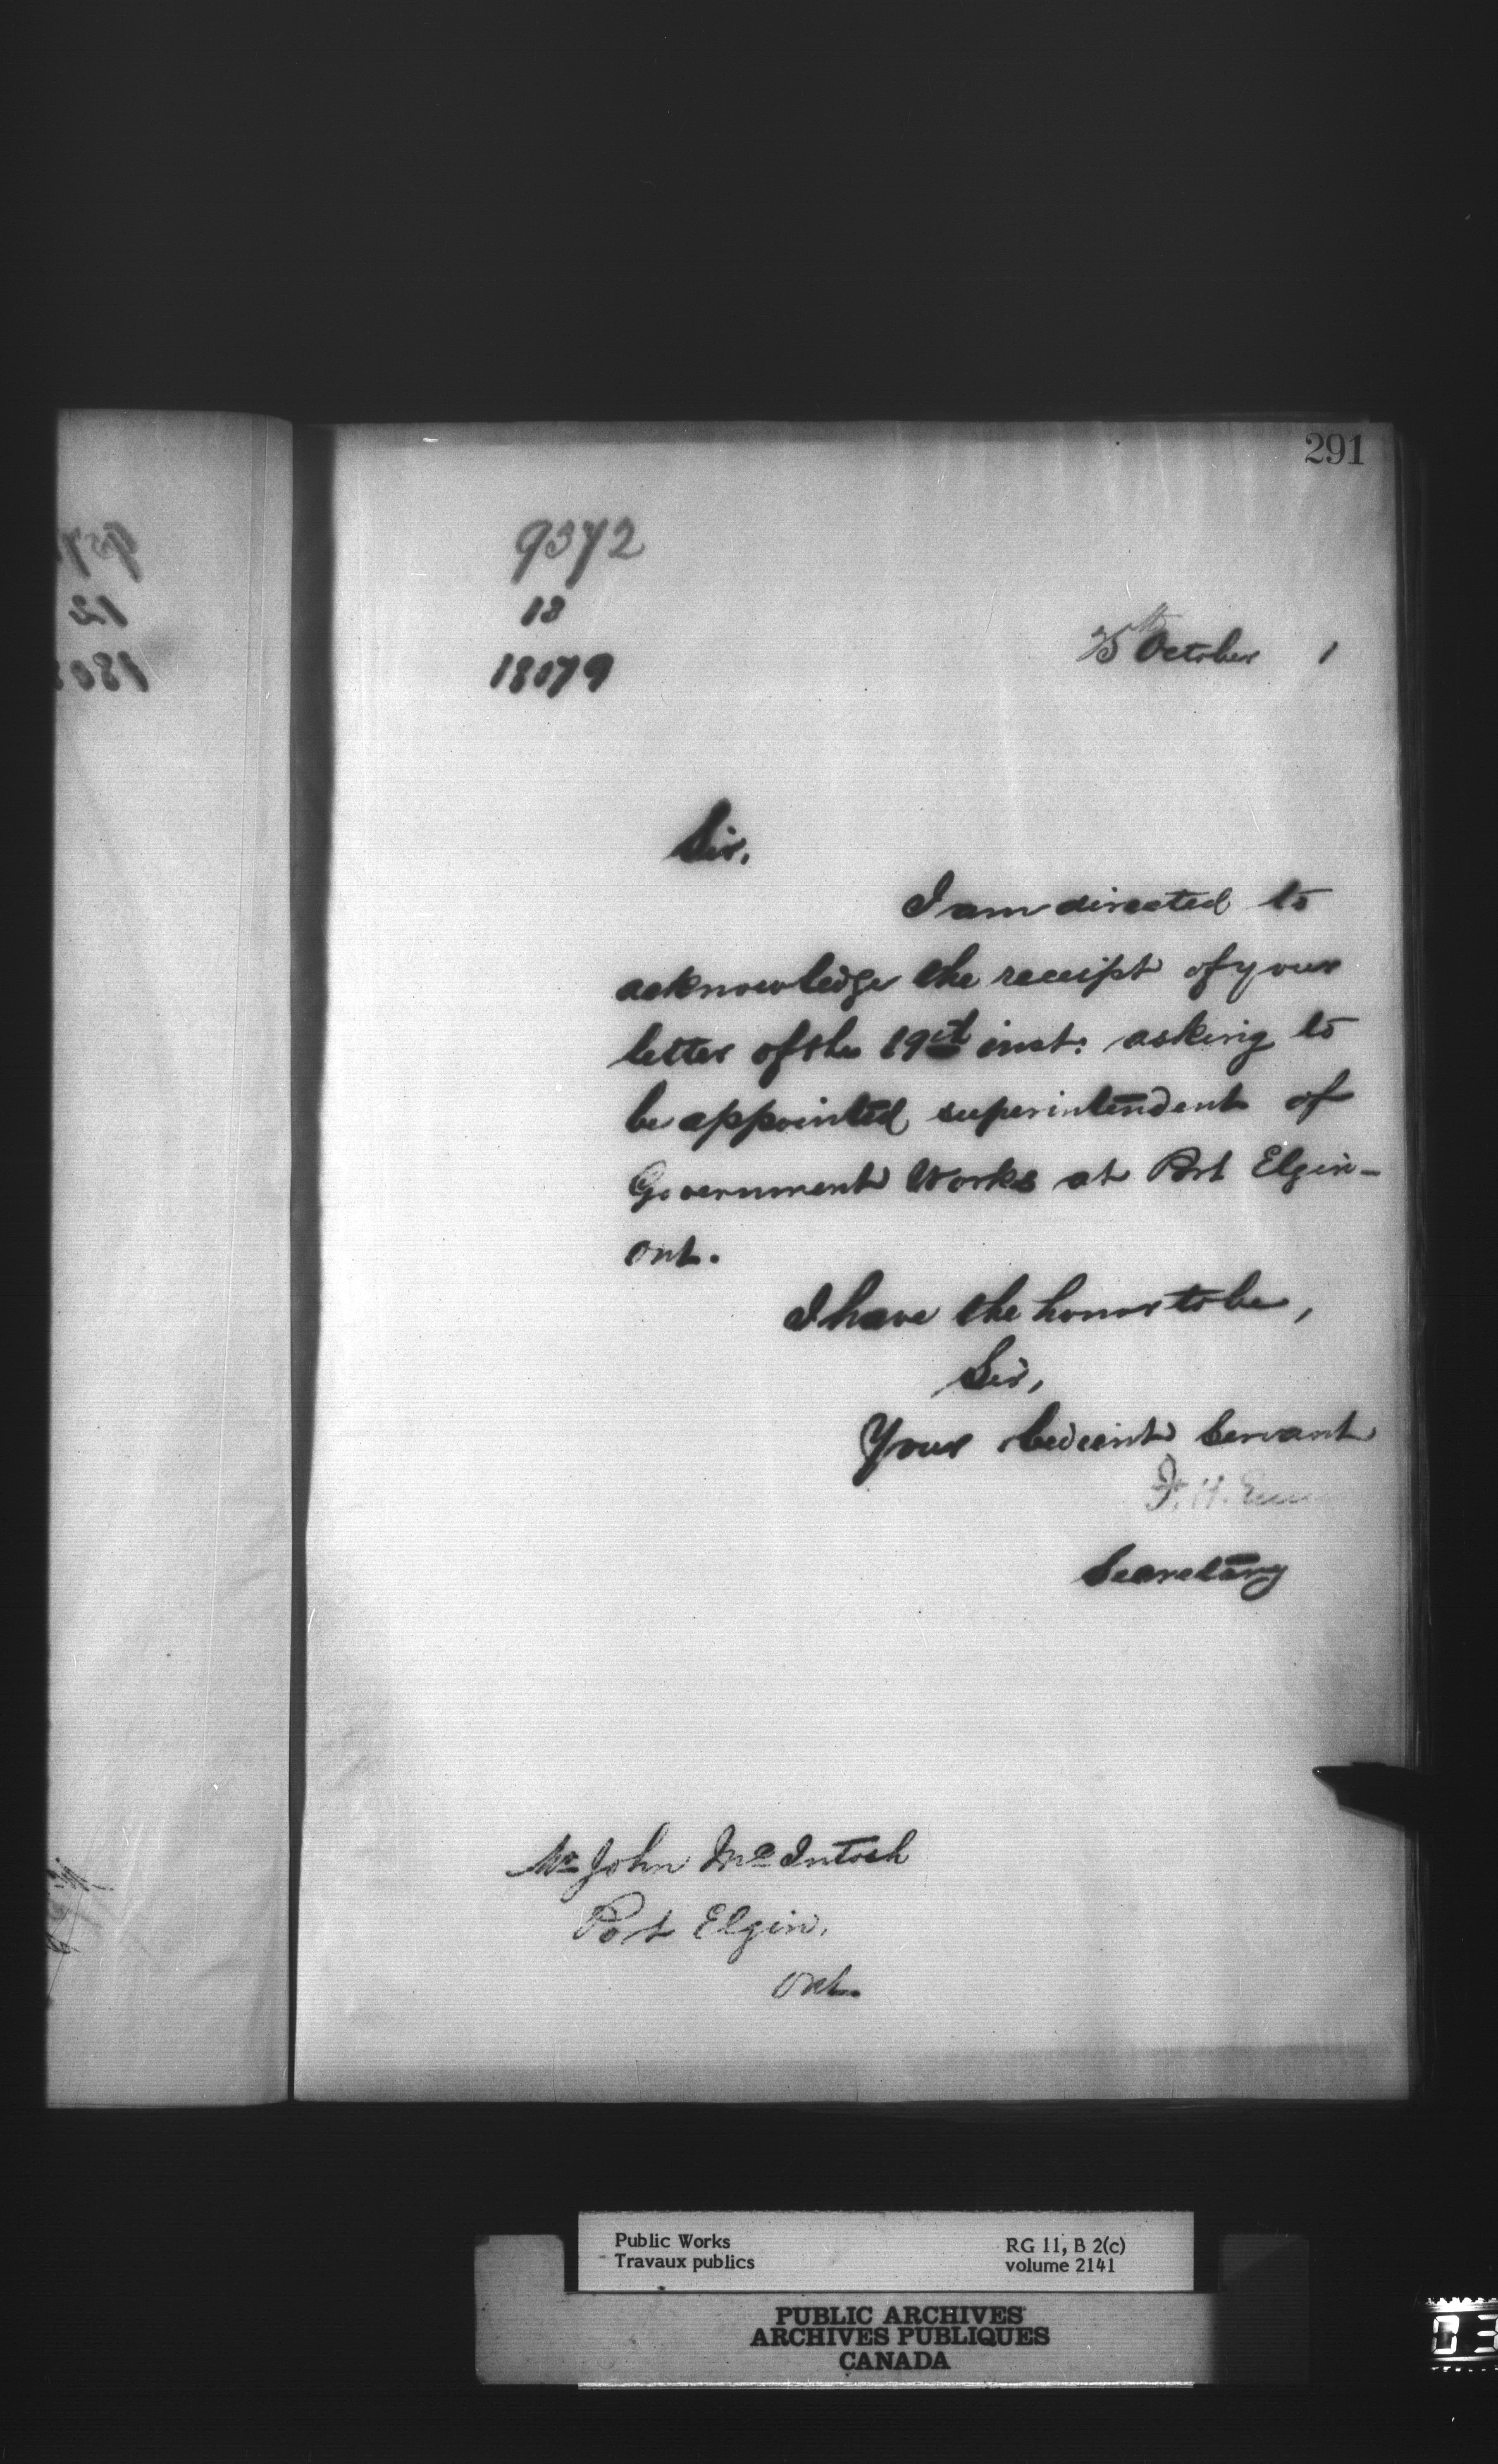 291
9372
13
18079
25th October 1
Sir,
I am directed to
acknowledge the receipt of your
letter of the 19th inst: asking to
be appointed superintendent of
Government Works at Port Elgin-
Ont.
I have the honor to be,
Sir,
Your obedient Servant
F. H. Ennis
Secretary
Mr John McIntosh
Port Elgin,
Ont.
Public Works
Travaux publics
RG 11, B 2(c)
volume 2141
PUBLIC ARCHIVES
ARCHIVES PUBLIQUES
CANADA